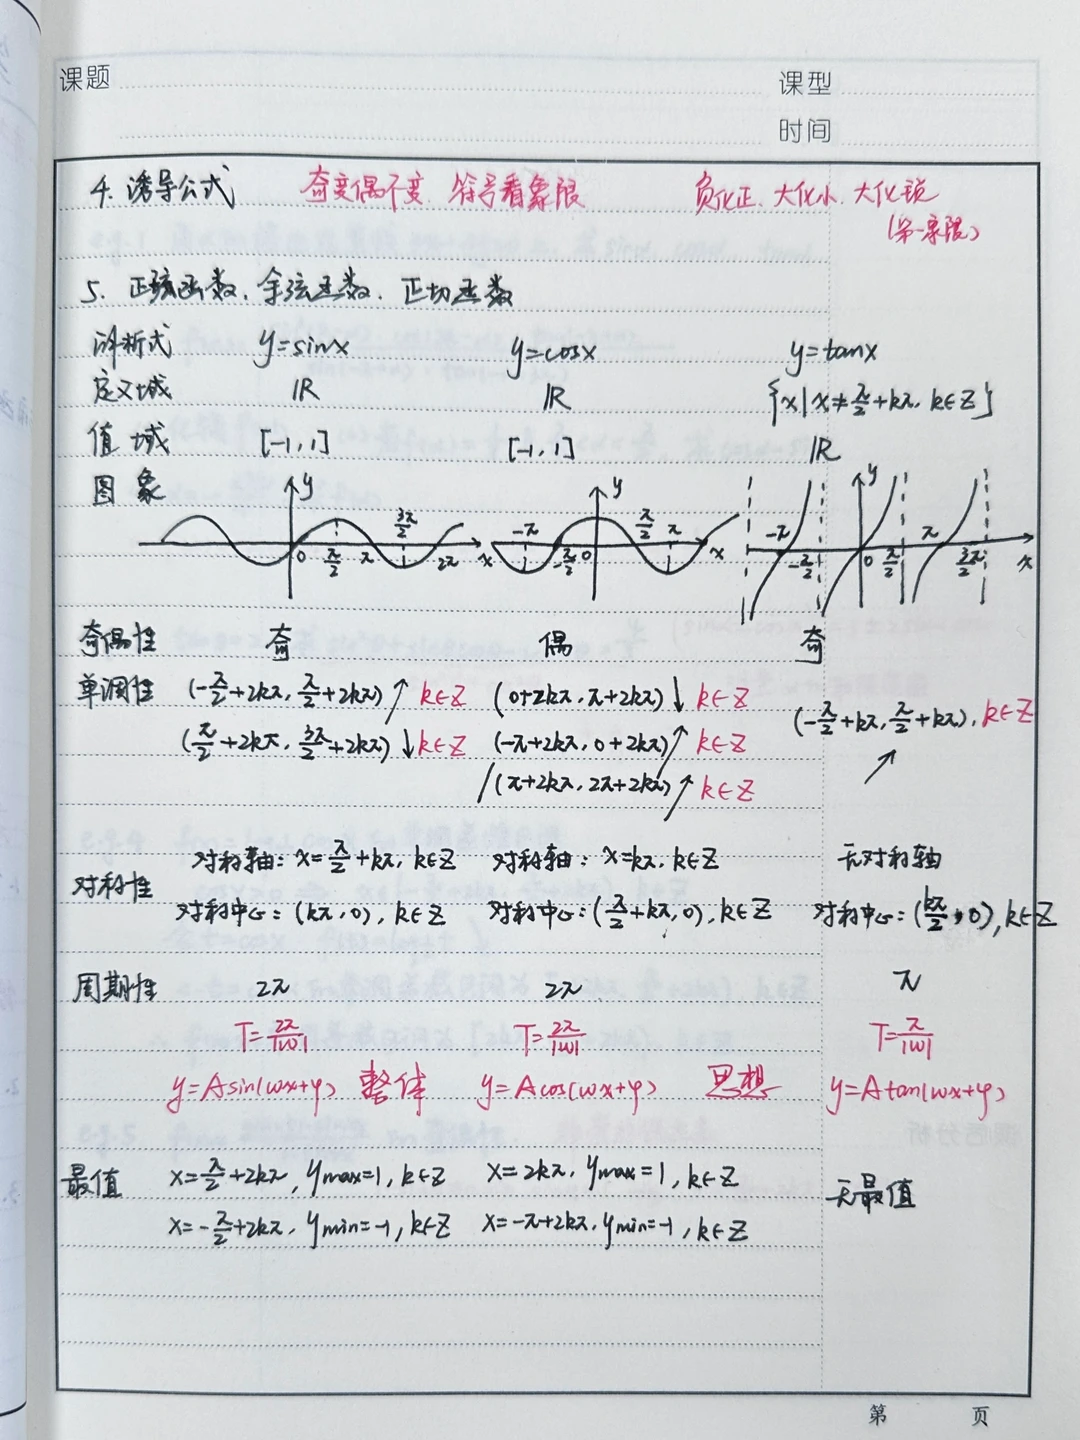 课题 课型
时间
4. 诱导公式 奇变偶不变 符号看象限 负化正、大化小、大化锐
(第一象限)
5. 正弦函数、余弦函数、正切函数
解析式 y=sinx y=cosx y=tanx
定义域 R R {x|x≠π/2+kπ, k∈Z}
值域 [-1,1] [-1,1] R
图象 y y y
0 π/2 π 3π/2 2π x -π -π/2 0 π/2 π x -π -π/2 0 π/2 π 3π/2 x
奇偶性 奇 偶 奇
单调性 (-π/2+2kπ, π/2+2kπ)↗ k∈Z (0+2kπ, π+2kπ)↓ k∈Z (-π/2+kπ, π/2+kπ), k∈Z
(π/2+2kπ, 3π/2+2kπ)↓ k∈Z (-π+2kπ, 0+2kπ)↗ k∈Z ↗
/(π+2kπ, 2π+2kπ)↗ k∈Z
对称性 对称轴: x=π/2+kπ, k∈Z 对称轴: x=kπ, k∈Z 无对称轴
对称中心: (kπ,0), k∈Z 对称中心: (π/2+kπ,0), k∈Z 对称中心: (kπ/2,0), k∈Z
周期性 2π 2π π
T=2π/|ω| T=2π/|ω| T=π/|ω|
y=Asin(ωx+φ) 整体 y=Acos(ωx+φ) 思想 y=Atan(ωx+φ)
最值 x=π/2+2kπ, ymax=1, k∈Z x=2kπ, ymax=1, k∈Z 无最值
x=-π/2+2kπ, ymin=-1, k∈Z x=-π+2kπ, ymin=-1, k∈Z
第 页